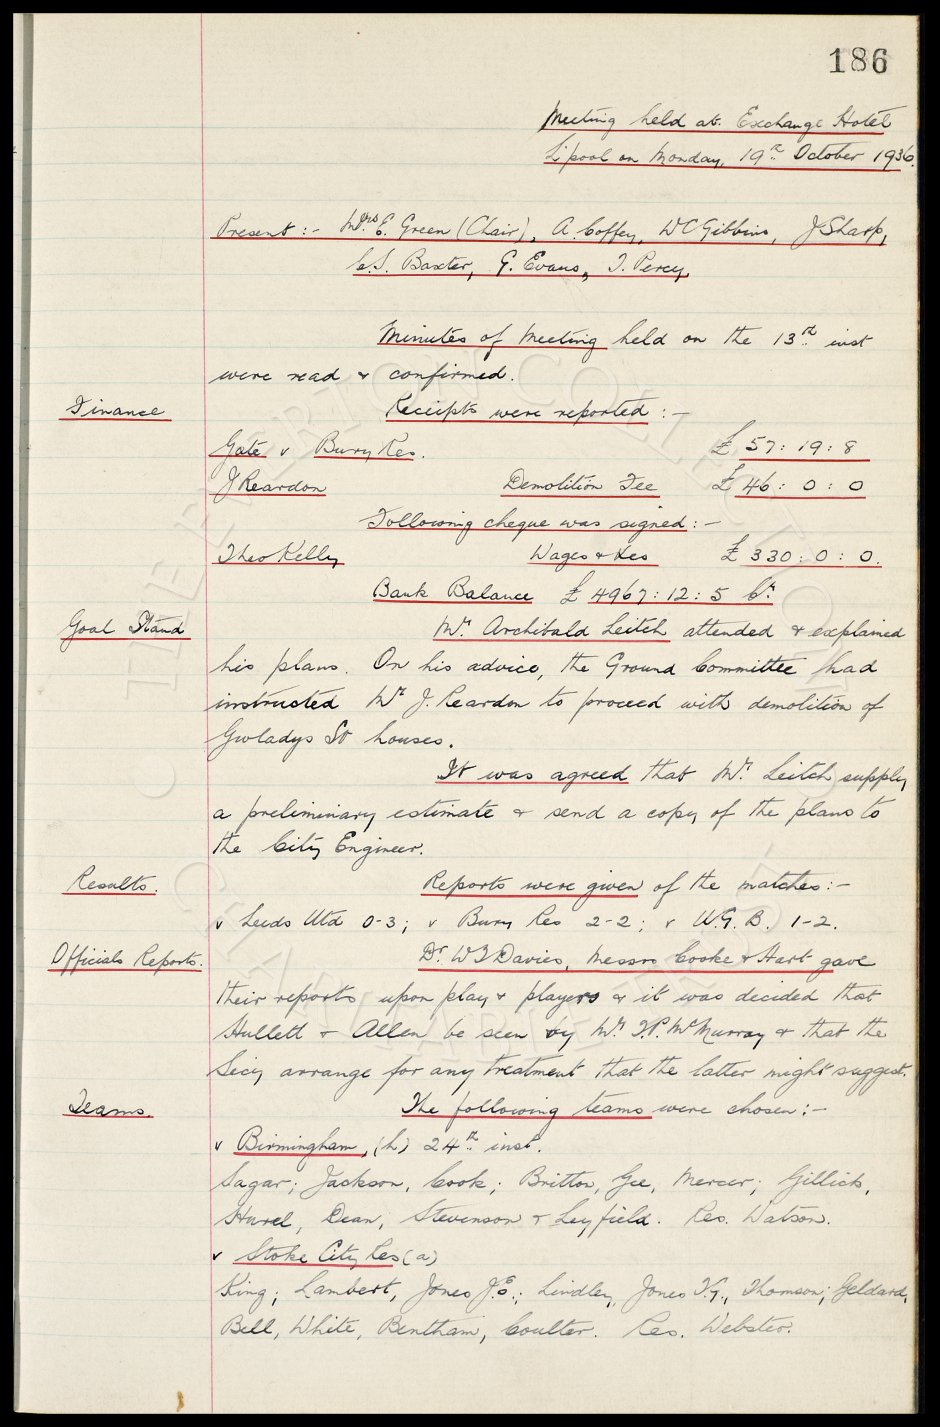 186
Meeting held at Exchange Hotel
L'pool on Monday, 19th October 1936.
Present :- Mrs E. Green (Chair), A. Coffey, W C Gibbins, J Sharp,
C.S. Baxter, G. Evans, T. Percy,
Minutes of Meeting held on the 13th inst
were read & confirmed.
Finance Receipts were reported :-
Gate v Bury Res. £ 57 : 19 : 8
J Reardon Demolition Fee £ 46 : 0 : 0
Following cheque was signed :-
Theo Kelly Wages & Xes £ 330 : 0 : 0.
Bank Balance £ 4967 : 12 : 5 Cr.
Goal Stand Mr Archibald Leitch attended & explained
his plans. On his advice, the Ground Committee had
instructed Mr J. Reardon to proceed with demolition of
Gwladys St houses.
It was agreed that Mr. Leitch supply
a preliminary estimate & send a copy of the plans to
the City Engineer.
Results. Reports were given of the matches :-
v Leeds Utd 0-3; v Bury Res 2-2; v W.G.B. 1-2.
Officials Reports. Dr. W J Davies, Messrs Cooke & Hart gave
their reports upon play & players & it was decided that
Hullett & Allen be seen by Mr T.P. McMurray & that the
Secy arrange for any treatment that the latter might suggest.
Teams. The following teams were chosen :-
v Birmingham, (h) 24th inst.
Sagar; Jackson, Cook; Britton, Gee, Mercer; Gillick,
Hurel, Dean, Stevenson & Leyfield. Res. Watson.
v Stoke City Res (a)
King; Lambert, Jones J.E.; Lindley, Jones T.G., Thomson; Geldard,
Bell, White, Bentham, Coulter. Res. Webster.
THE EVERTON COLLECTION
CHARITABLE TRUST